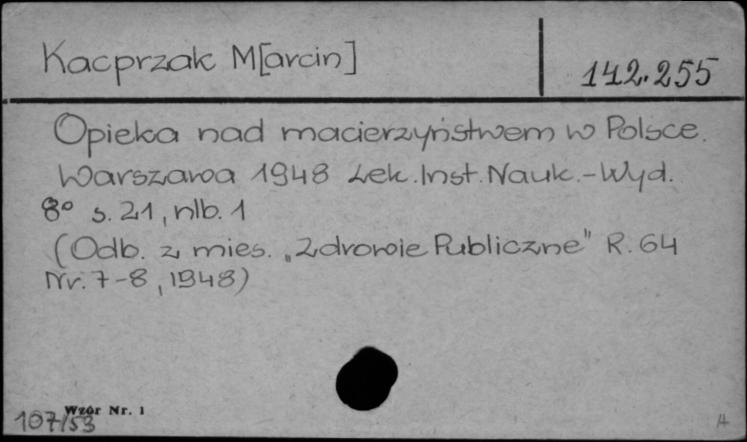 Kacprzak M[arcin]
142.255
Opieka nad macierzyństwem w Polsce.
Warszawa 1948 Lek. Inst. Nauk.-Wyd.
8° s. 21, nlb. 1
(Odb. z mies. „Zdrowie Publiczne" R. 64
Nr. 7-8, 1948)
Wzór Nr. 1
107/53
A